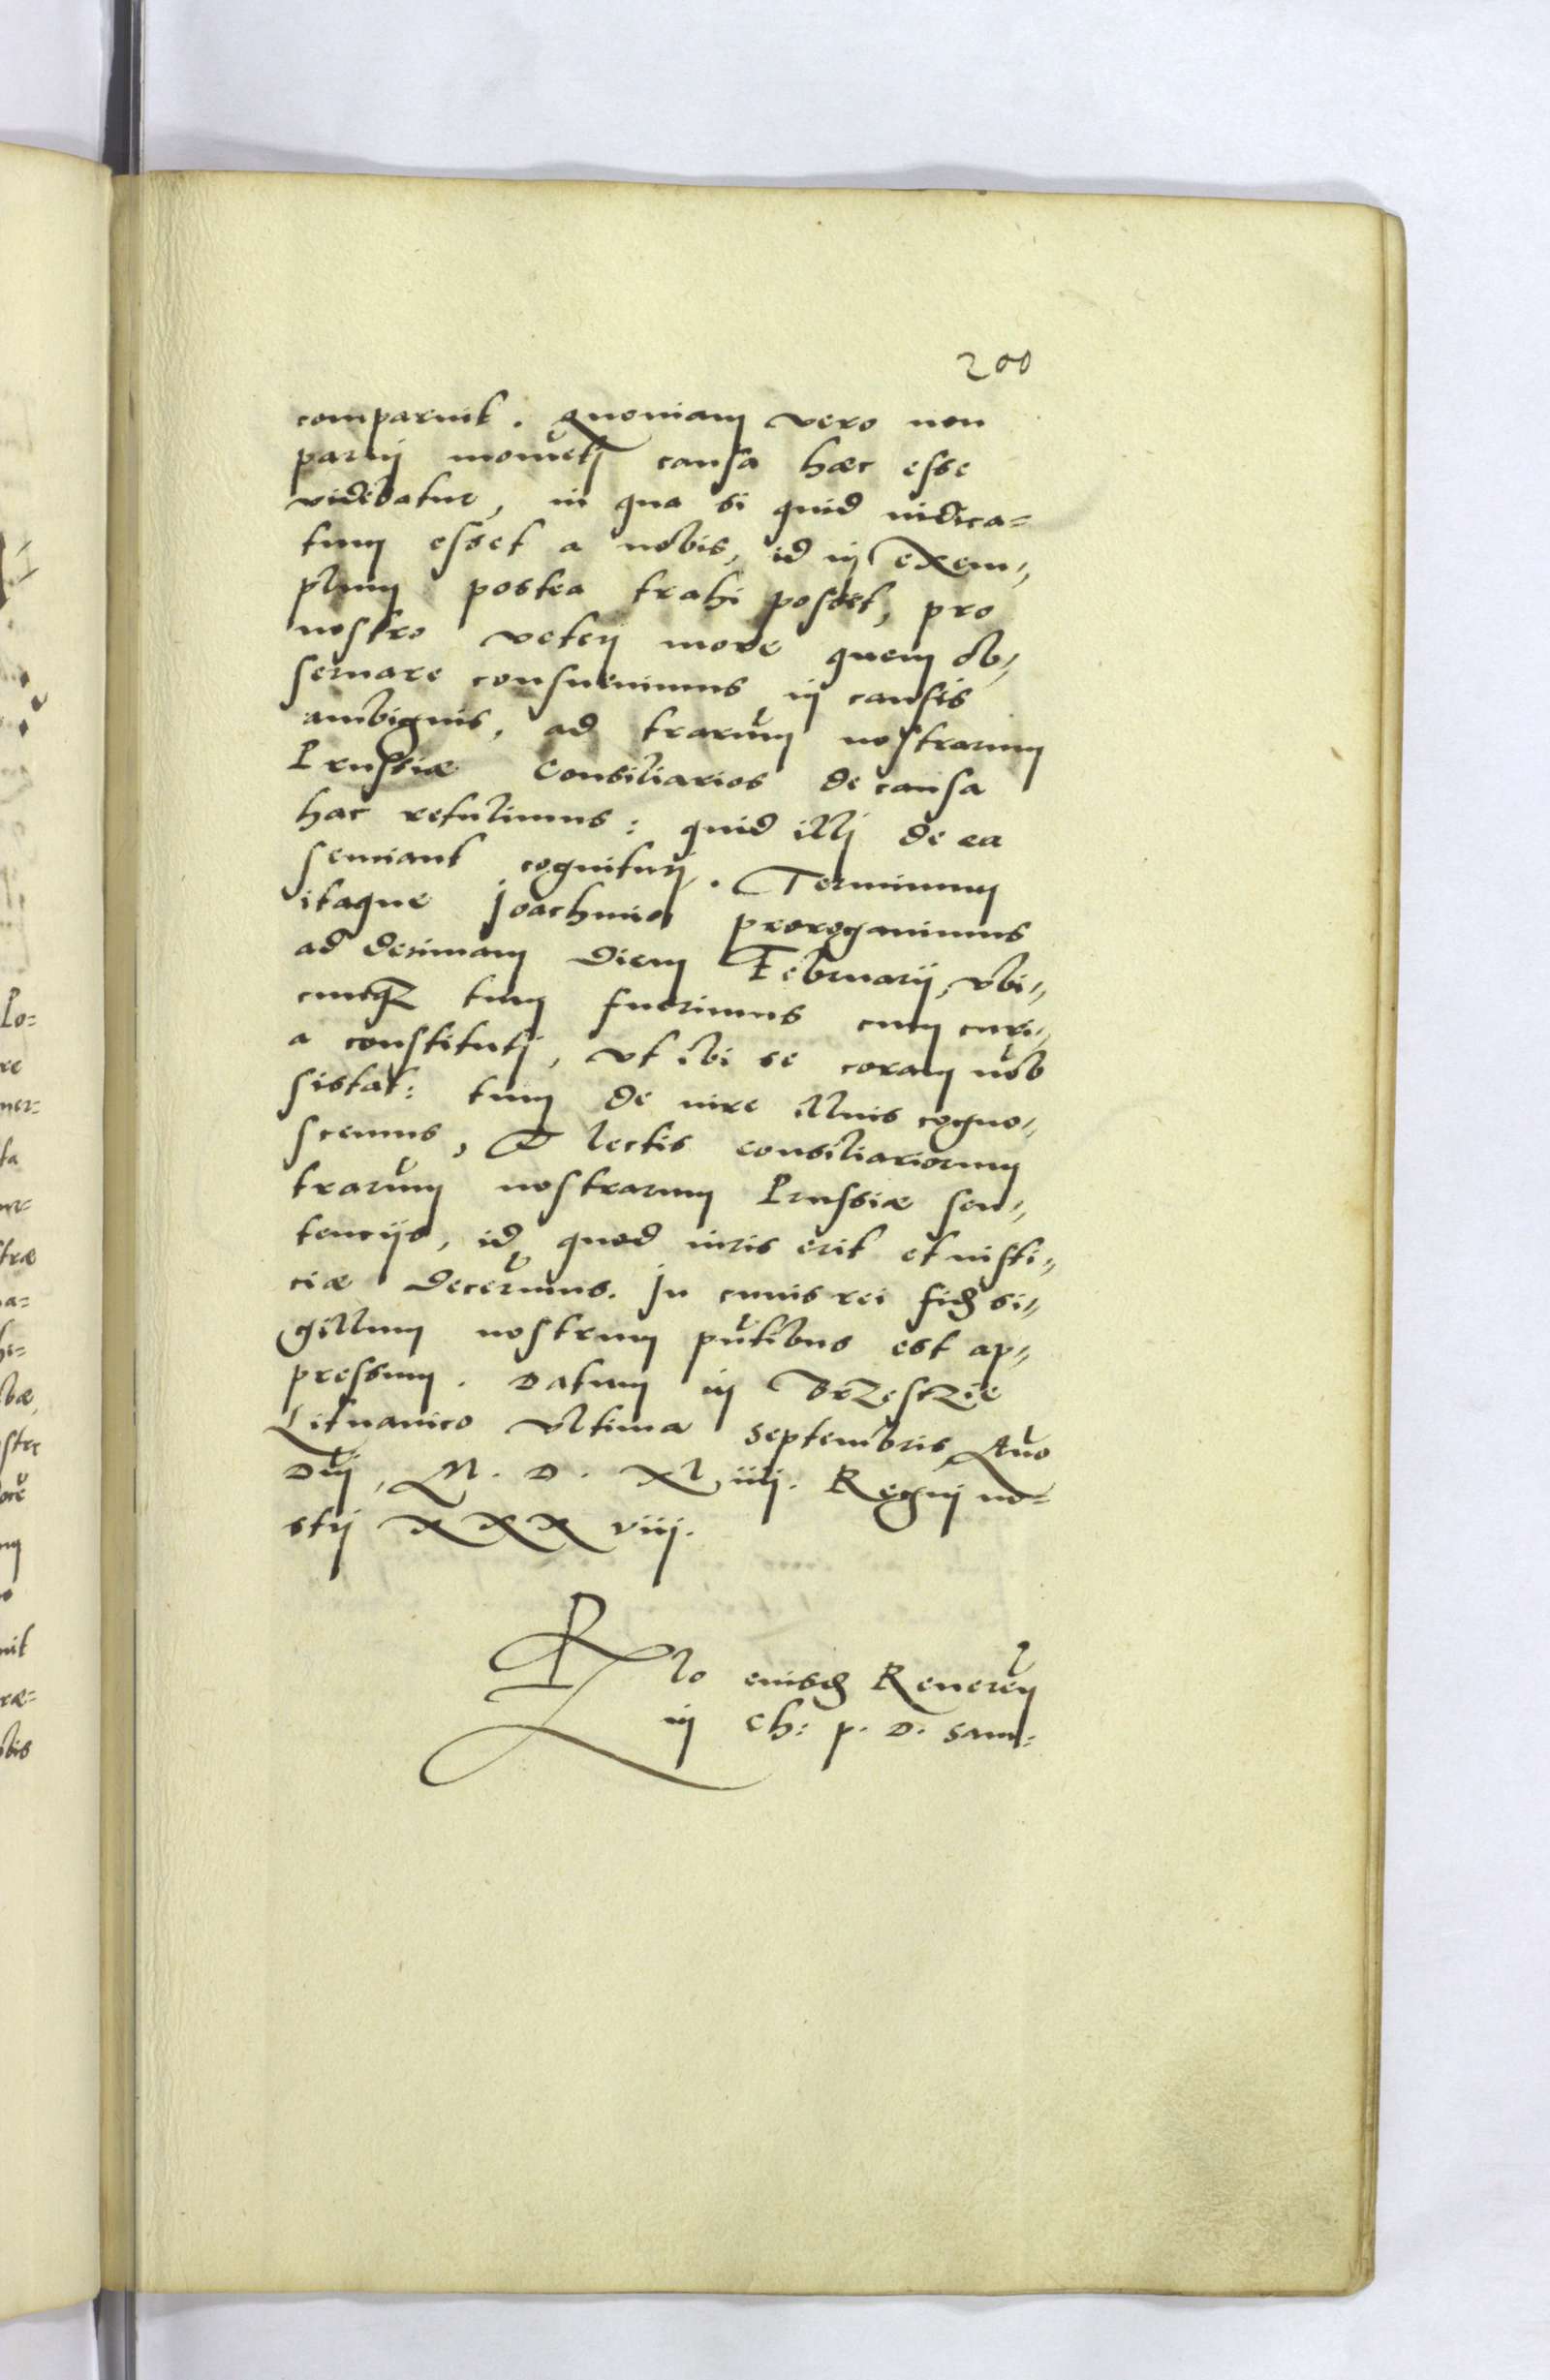 200
comparuit. Quoniam vero non
parvi momēti causa hæc esse
videbatur, in qua si quid iudica=
tum esset a nobis, id in exem=
plum postea trahi posset, pro
nostro veteri more quem ob=
seruare consueuimus in causis
ambiguis, ad terarū nostrarum
Prussiæ Consiliarios de causa
hac retulimus: quid illi de ea
senciant cognituri. Terminum
itaque Joachimo prorogauimus
ad decimam diem Februarij, vbi=
cunq₃ tum fuerimus cum curi=
a constituti, vt ibi se coram nob
sistat: tum de iure illius cogno=
scemus, & lectis consiliariorum
terarū nostrarum Prussiæ sen=
tencijs, id quod iuris erit et iusti=
ciæ decernemus. In cuius rei fidē si=
gillum nostrum pn̄tibus est ap=
pressum. Datum in Brzesczie
Lituanico vltima Septembris Anō
Dn̄i, M. D. XL iiij. Regni no=
stri XXX viij.
Rlō eiusdē Reueren̄
in Ch: p. D. Sam=